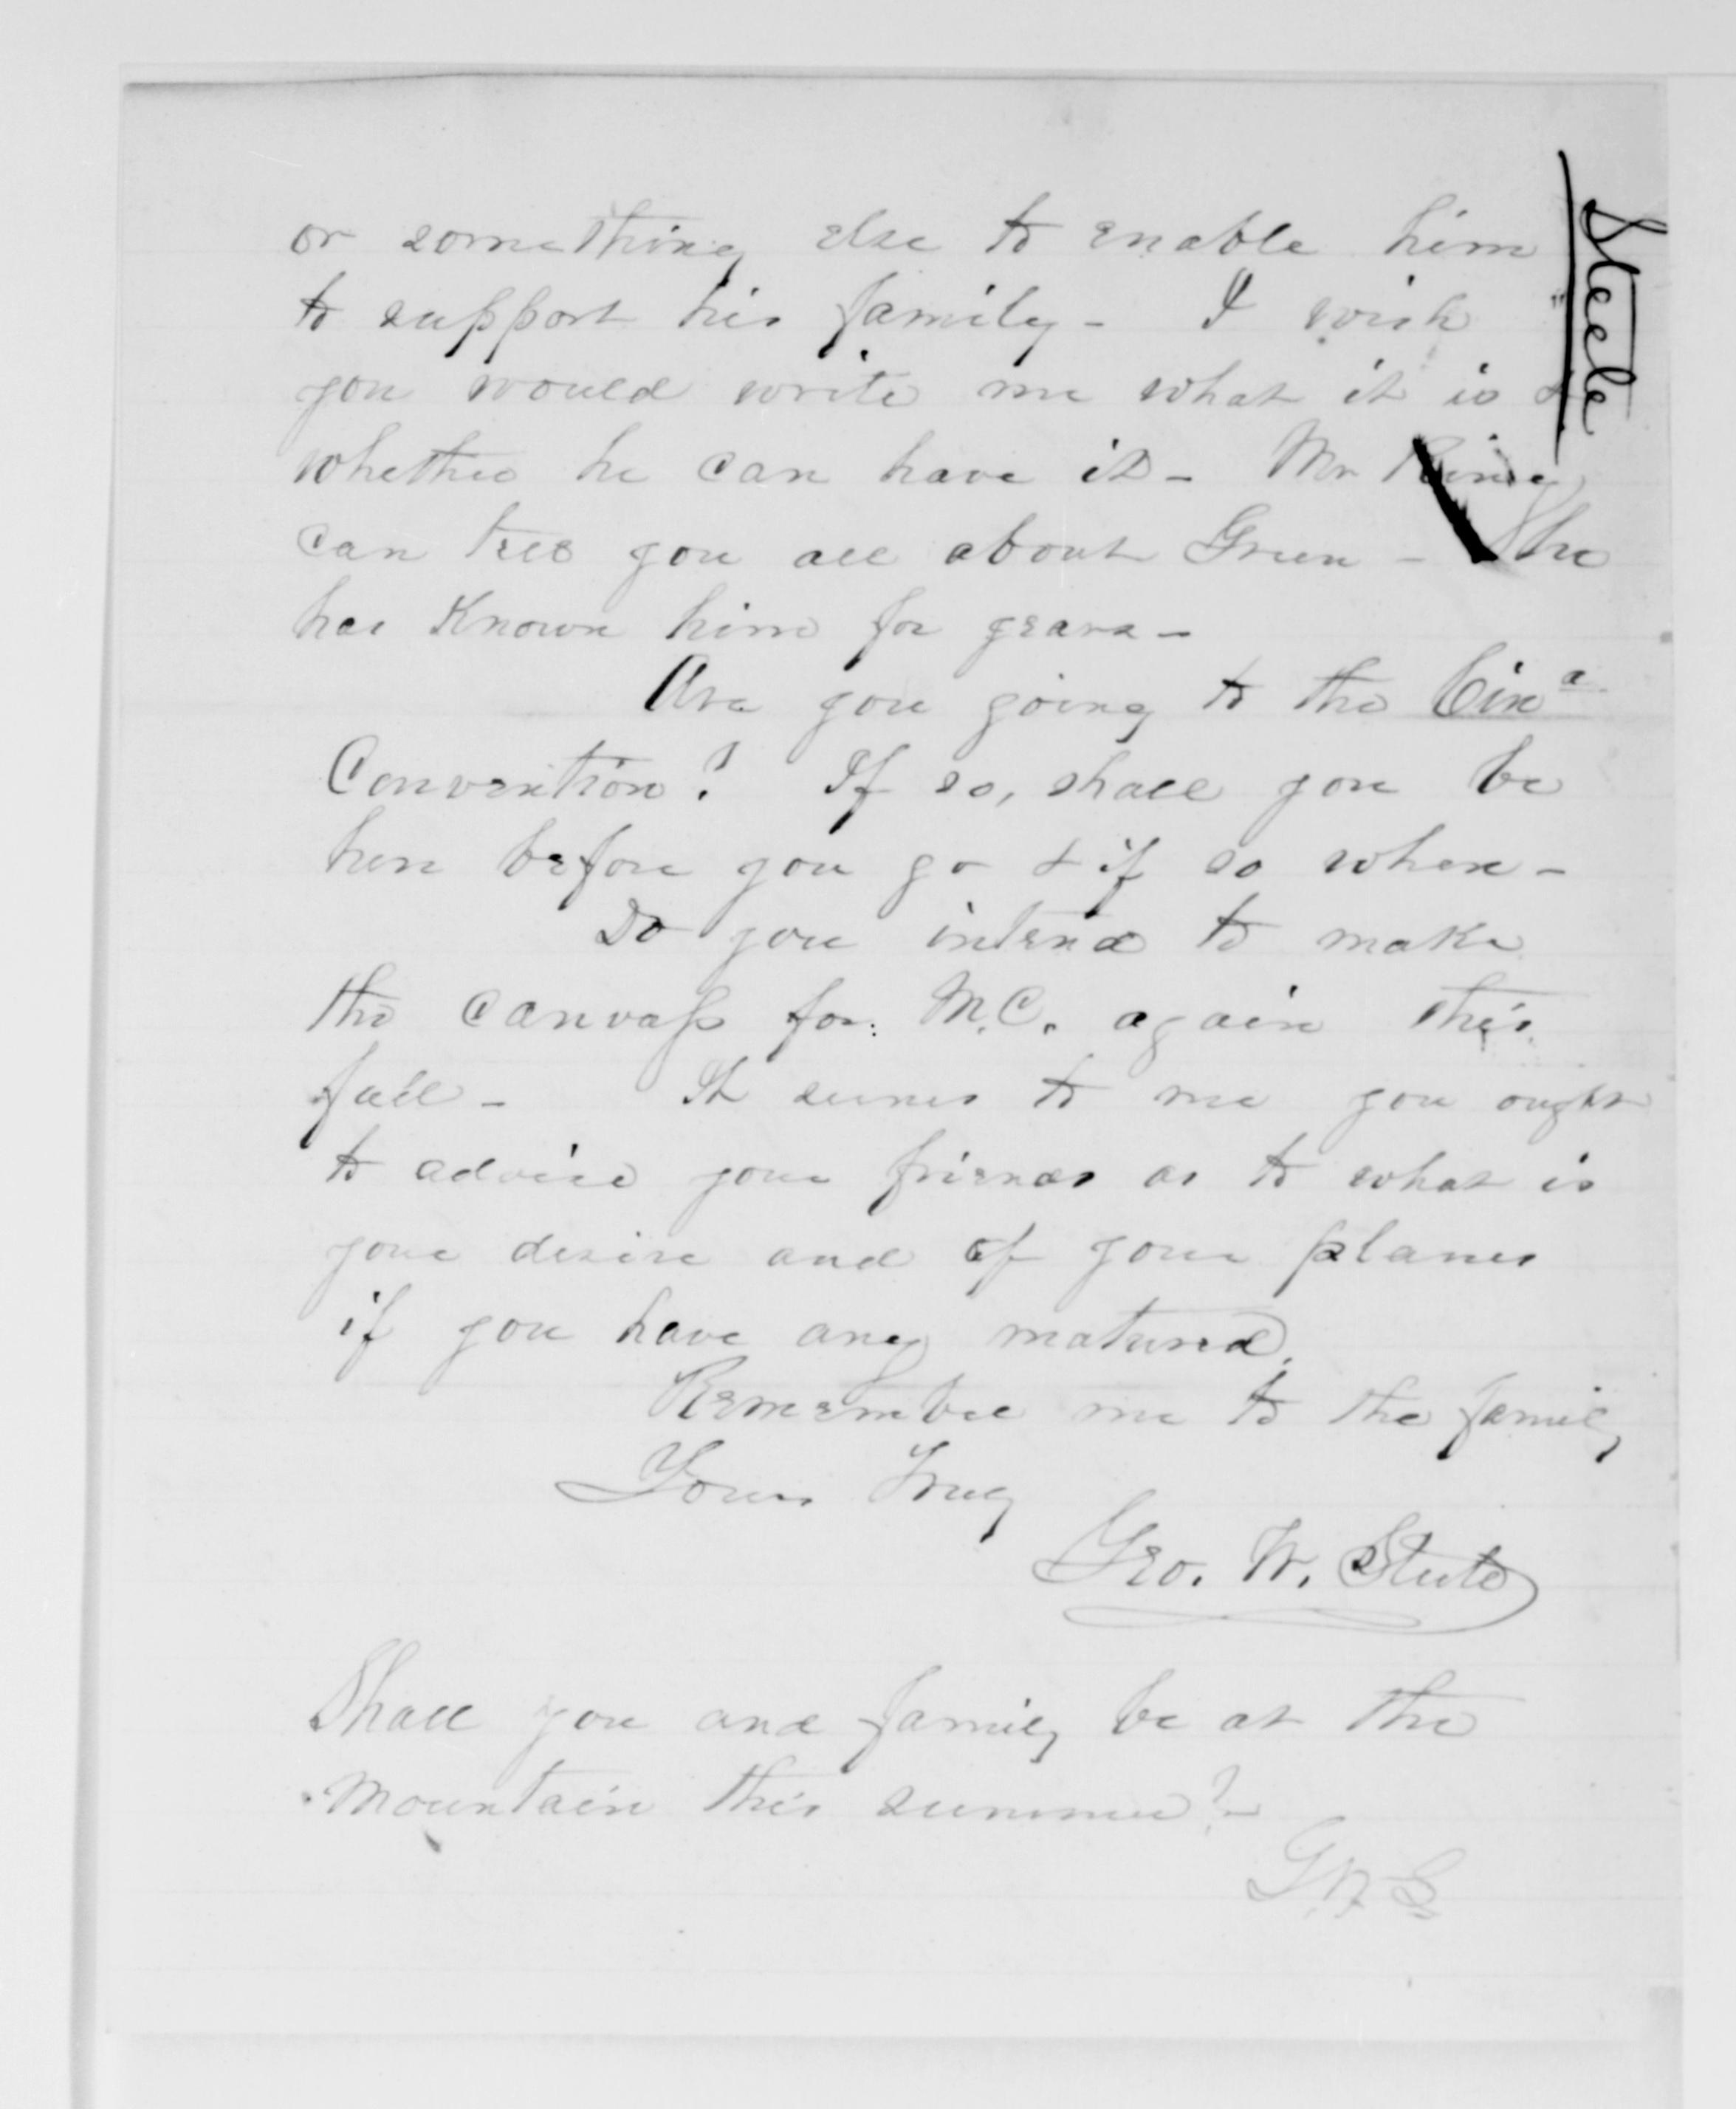 Steele
or something else to enable him
to support his family - I wish
you would write me what it is &
whether he can have it - Mr
can tell you all about Green - She
has Known him for years -
Are you going to the Cin^a
Convention? If so, shall you be
here before you go & if so when -
Do you intend to make
the canvass for M.C. again this
fall - It seems to me you ought
to advise your friends as to what is
your desire and of your planes
if you have any matured.
Remember me to the family
Yours Truly
Geo. W. Steele
Shall you and family be at the
Mountain this summer? -
G.W.S.